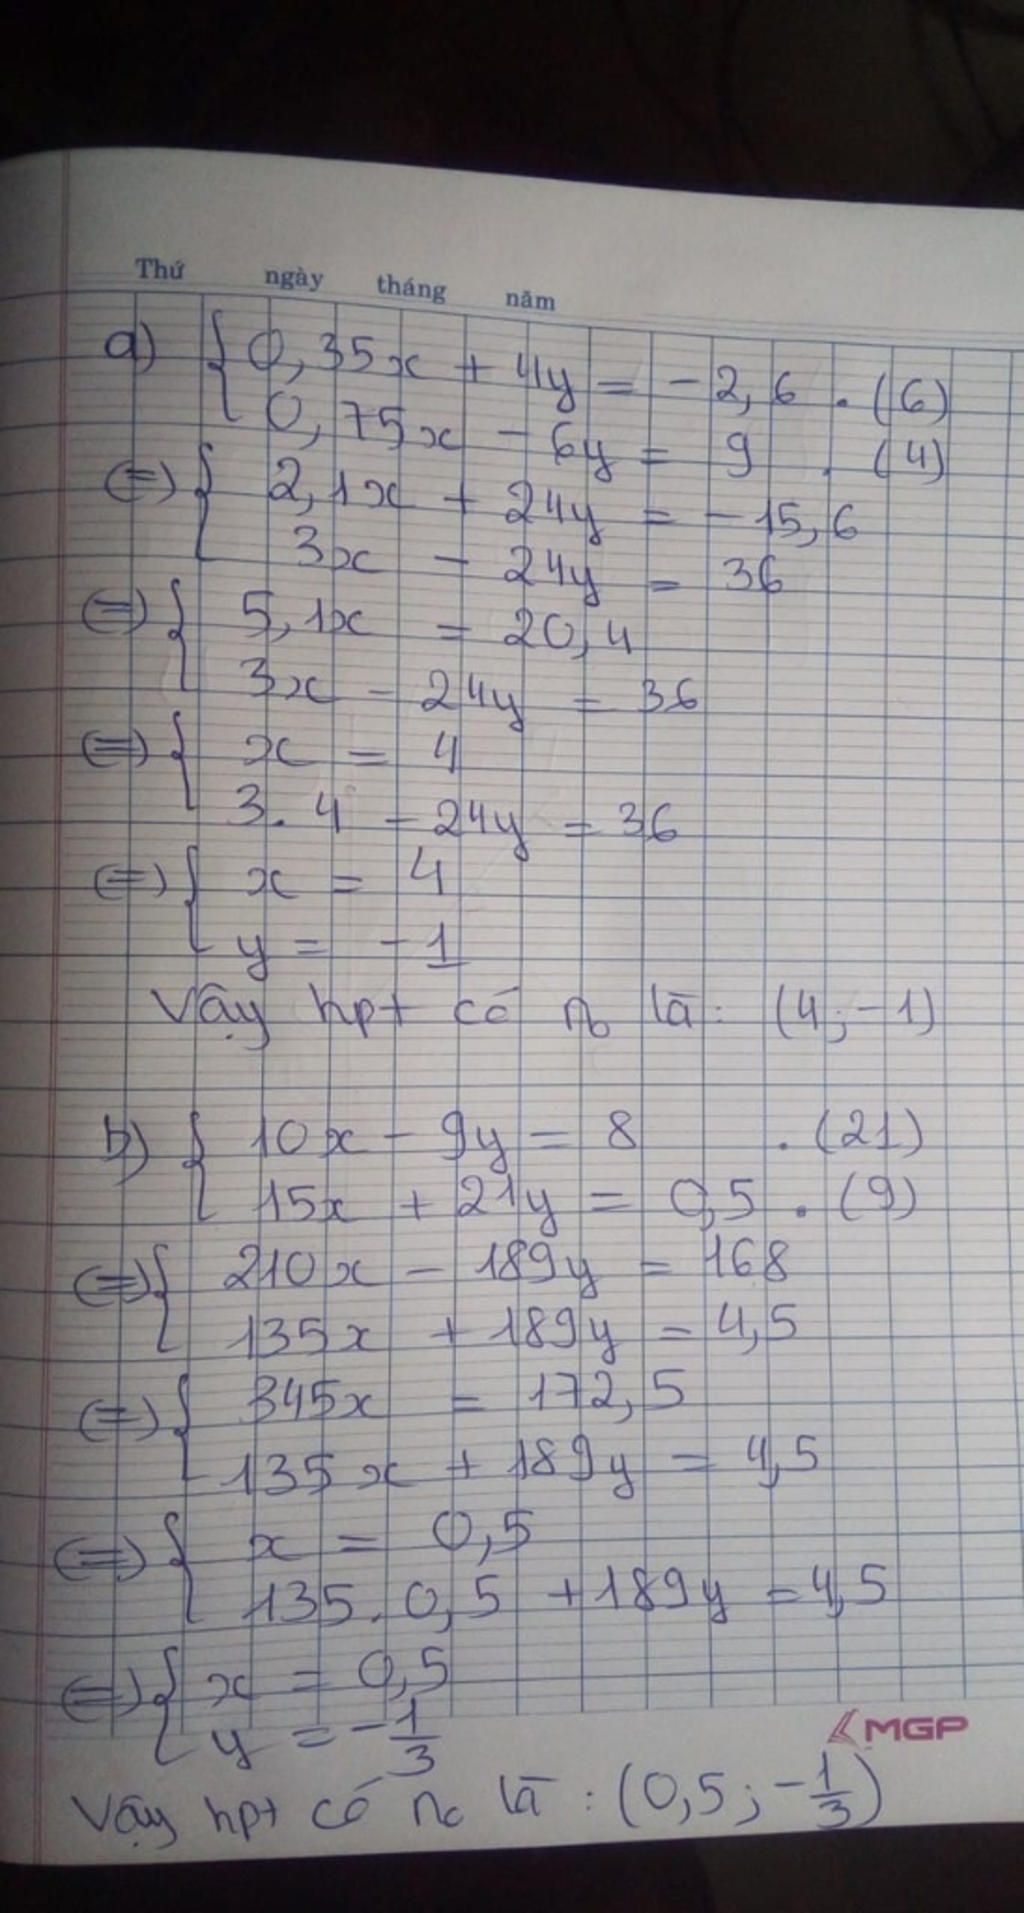 Thứ ngày tháng năm
a) { 0,35x + 4y = -2,6 . (6)
0,75x - 6y = 9 . (4)
(=) { 2,1x + 24y = -15,6
3x - 24y = 36
(=) { 5,1x = 20,4
3x - 24y = 36
(=) { x = 4
3.4 - 24y = 36
(=) { x = 4
y = -1
Vậy hpt có no là: (4;-1)
b) { 10x - 9y = 8 . (21)
15x + 21y = 0,5 . (9)
(=) { 210x - 189y = 168
135x + 189y = 4,5
(=) { 345x = 172,5
135x + 189y = 4,5
(=) { x = 0,5
135.0,5 + 189y = 4,5
(=) { x = 0,5
y = -1/3
MGP
Vậy hpt có no là: (0,5; -1/3)